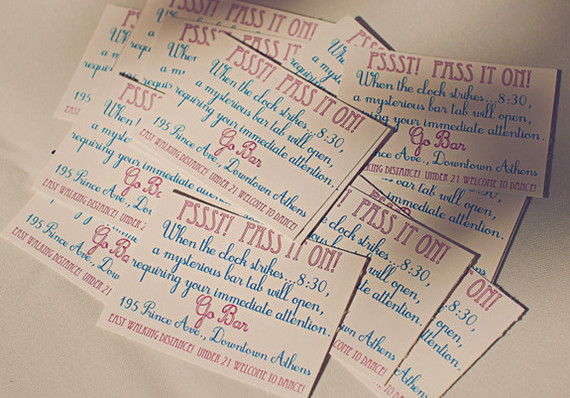 PSSST! PASS IT ON!
When the clock strikes...8:30,
a mysterious bar tab will open,
requiring your immediate attention.
Go Bar
195 Prince Ave., Downtown Athens
EASY WALKING DISTANCE! UNDER 21 WELCOME TO DANCE!
PSSST! PASS IT ON!
When the clock strikes...8:30,
a mysterious bar tab will open,
requiring your immediate attention.
Go Bar
Prince Ave., Downtown Athens
UNDER 21 WELCOME TO DANCE!
PSSST! PASS IT ON!
When the clock strikes...8:30,
a mysterious bar tab will open,
requiring your immediate attention.
Go Bar
195 Prince Ave., Downtown Athens
EASY WALKING DISTANCE! UNDER 21 WELCOME TO DANCE!
PASS IT ON!
8:30,
will open,
attention.
Athens
WELCOME TO DANCE!
195 Prince Ave., Dow
EASY WALKING DISTANCE!
Go Bar